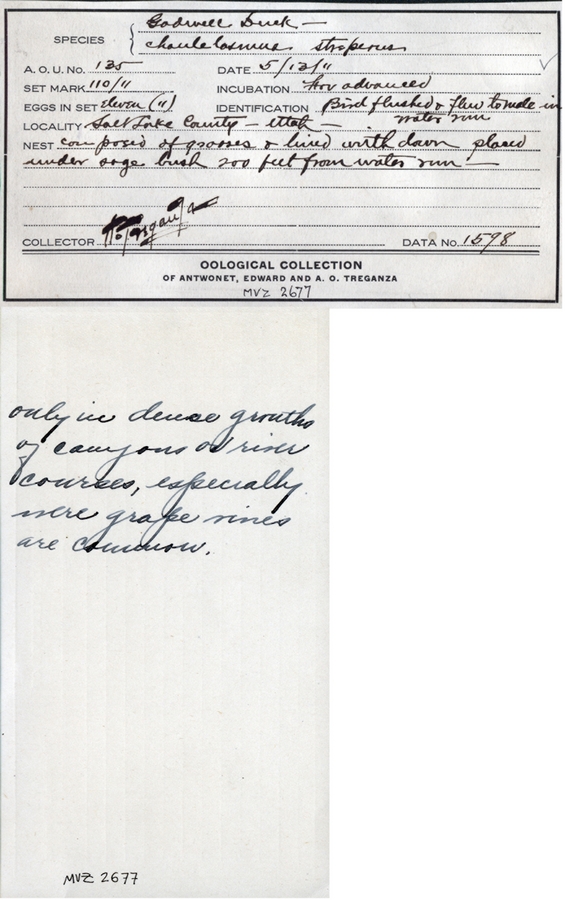 Gadwell Duck —
SPECIES { Chaulelasmus streperus
A. O. U. No. 135 DATE 5/13/11
SET MARK 110/11 INCUBATION advanced
EGGS IN SET eleven (11) IDENTIFICATION Bird flushed & flew to male in
water run
LOCALITY Salt Lake County — Utah —
NEST composed of grasses & lined with down placed
under sage bush 200 feet from water run —
COLLECTOR Treganza DATA No. 1598
OOLOGICAL COLLECTION
OF ANTWONET, EDWARD AND A. O. TREGANZA
MVZ 2677
only in dense grouths
of canyons or river
courses, especially
were grape vines
are common.
MVZ 2677